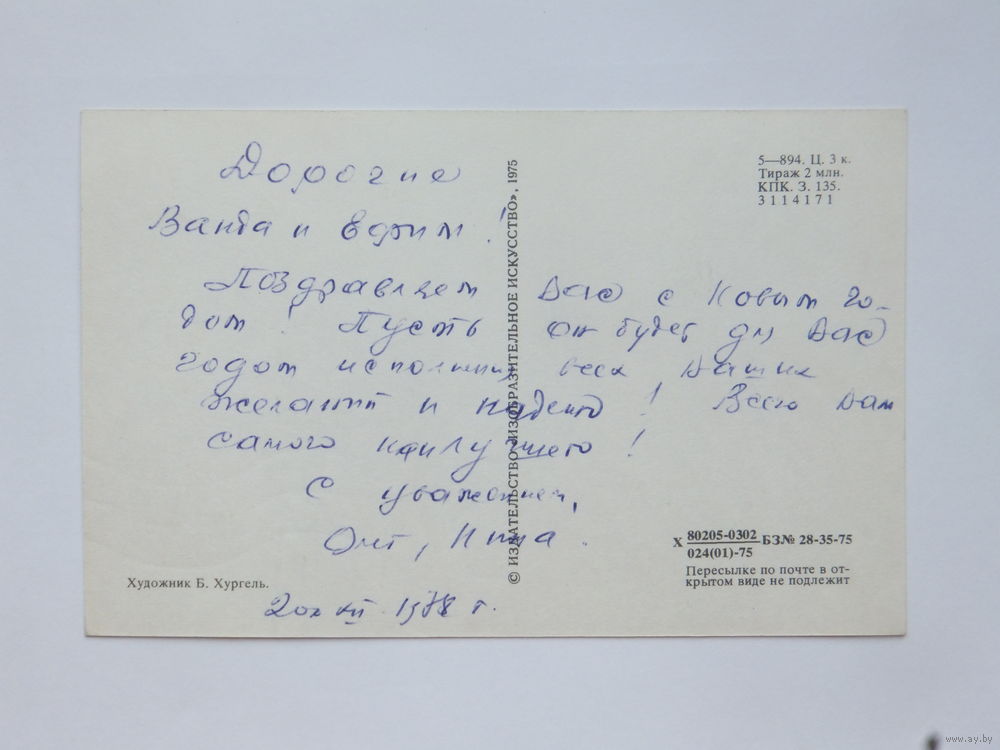 Дорогие
Ванда и Ефим!
Поздравляем Вас с Новым го-
дом! Пусть он будет для Вас
годом исполнения всех Ваших
желаний и надежд! Всего Вам
самого наилучшего!
С уважением,
20 XII 1978 г.
Художник Б. Хургель.
© ИЗДАТЕЛЬСТВО «ИЗОБРАЗИТЕЛЬНОЕ ИСКУССТВО», 1975
5—894. Ц. 3 к.
Тираж 2 млн.
КПК. З. 135.
3114171
Х 80205-0302 БЗ№ 28-35-75
024(01)-75
Пересылке по почте в от-
крытом виде не подлежит
www.ay.by